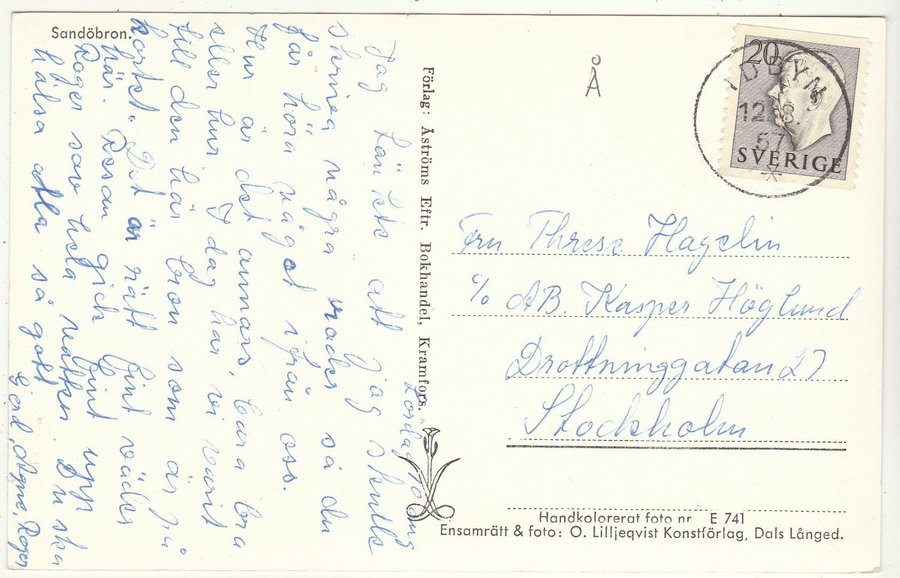 Sandöbron.
Lördag 10 Aug
Jag tänkte att jag skulle
skriva några rader så du
får höra något ifrån oss.
Hur är det annars, bara bra
eller hur I dag har vi varit
till den här bron som är på
kortet. Det är rätt fint väder
här. Resan gick fint upp
Roger sov hela natten. Du ska
hälsa alla så gott
Gerd, Agne, Roger
Förlag: Åströms Eftr. Bokhandel, Kramfors.
Å
20
12.8.
57
SVERIGE
Fru Threse Hagelin
c/o AB. Kasper Höglund
Drottninggatan 27
Stockholm
Handkolorerat foto nr E 741
Ensamrätt & foto: O. Lilljeqvist Konstförlag, Dals Långed.